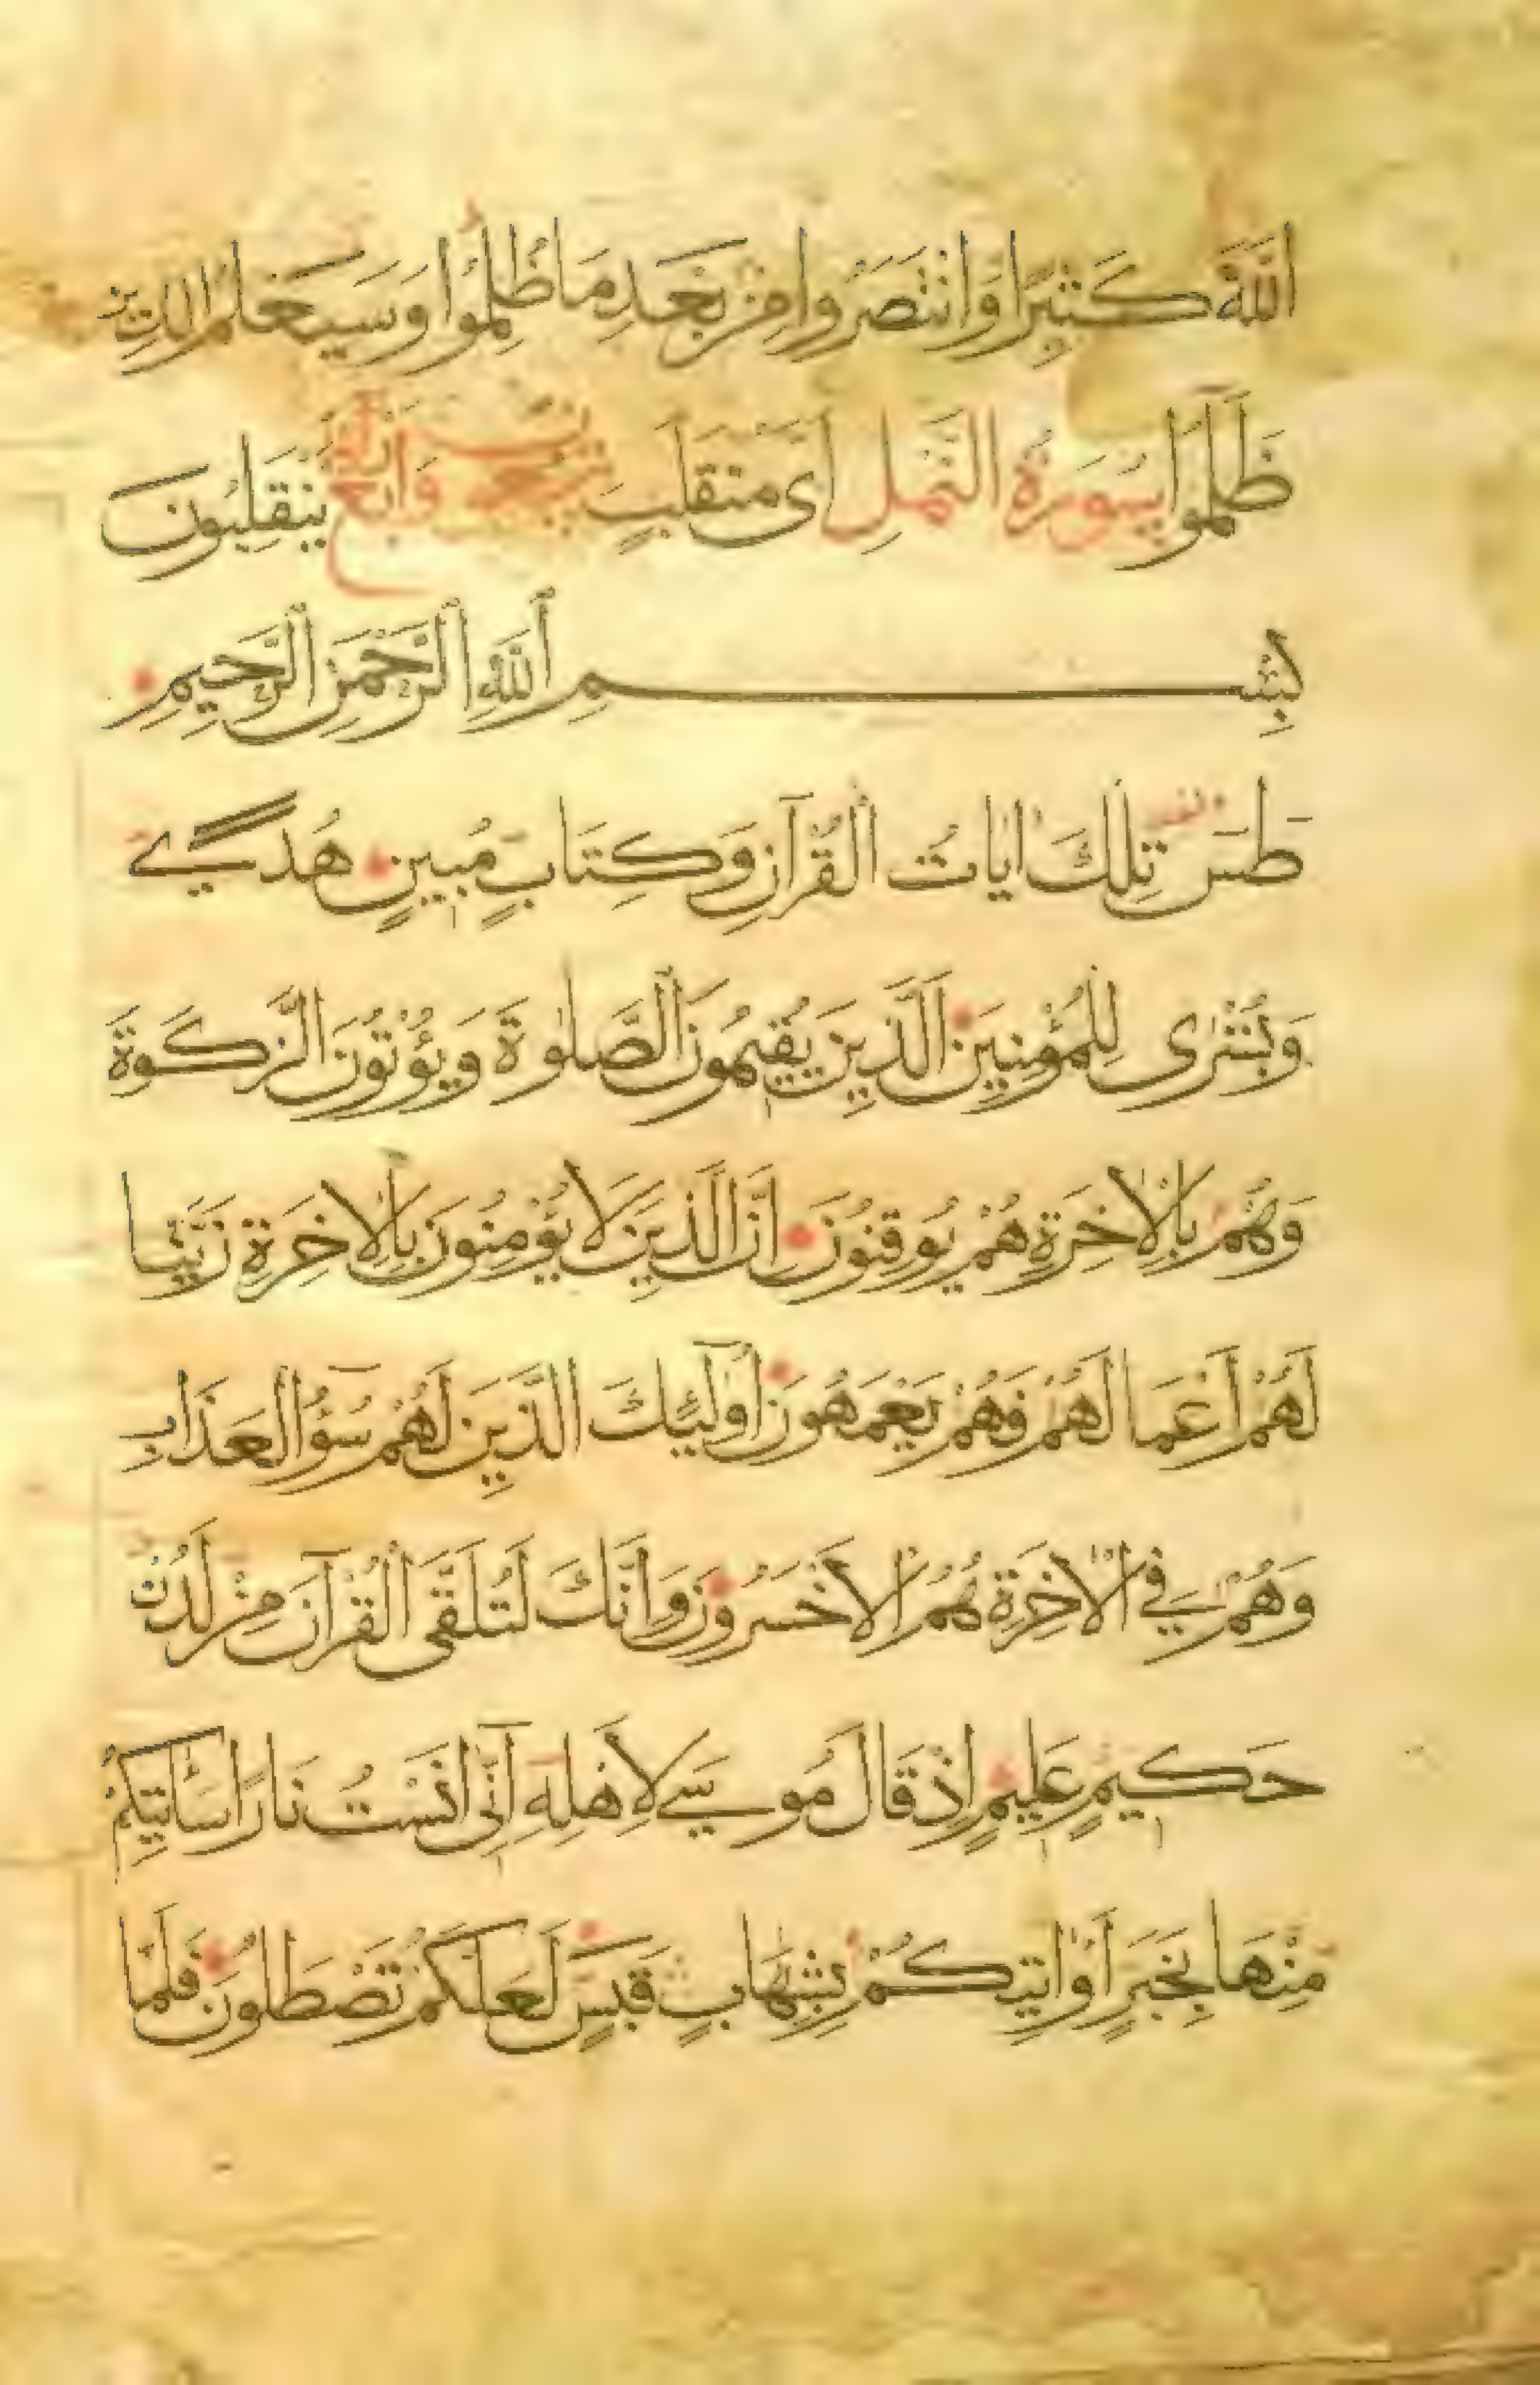 اللهَ كَثِيرًا وَانْتَصَرُوا مِنْ بَعْدِ مَا ظُلِمُوا وَسَيَعْلَمُ الَّذِينَ
ظَلَمُوا سُورَةُ النَّمْلِ اَىَّ مُنْقَلَبٍ يَنْقَلِبُونَ
بِسْمِ اللهِ الرَّحْمٰنِ الرَّحِيمِ
طٰسٓ تِلْكَ اٰيَاتُ الْقُرْآنِ وَكِتَابٍ مُبِينٍ هُدًى
وَبُشْرٰى لِلْمُؤْمِنِينَ الَّذِينَ يُقِيمُونَ الصَّلٰوةَ وَيُؤْتُونَ الزَّكَوةَ
وَهُمْ بِالْاٰخِرَةِ هُمْ يُوقِنُونَ اِنَّ الَّذِينَ لَا يُؤْمِنُونَ بِالْاٰخِرَةِ زَيَّنَّا
لَهُمْ اَعْمَالَهُمْ فَهُمْ يَعْمَهُونَ اُولٰٓئِكَ الَّذِينَ لَهُمْ سُوٓؤُ الْعَذَابِ
وَهُمْ فِي الْاٰخِرَةِ هُمُ الْاَخْسَرُونَ وَاِنَّكَ لَتُلَقَّى الْقُرْآنَ مِنْ لَدُنْ
حَكِيمٍ عَلِيمٍ اِذْ قَالَ مُوسٰى لِاَهْلِهِ اِنِّىٓ اٰنَسْتُ نَارًا سَاٰتِيكُمْ
مِنْهَا بِخَبَرٍ اَوْ اٰتِيكُمْ بِشِهَابٍ قَبَسٍ لَعَلَّكُمْ تَصْطَلُونَ فَلَمَّا